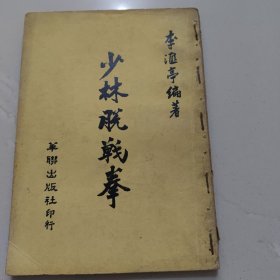 李滙亭編著
少林脫戰拳
華聯出版社印行